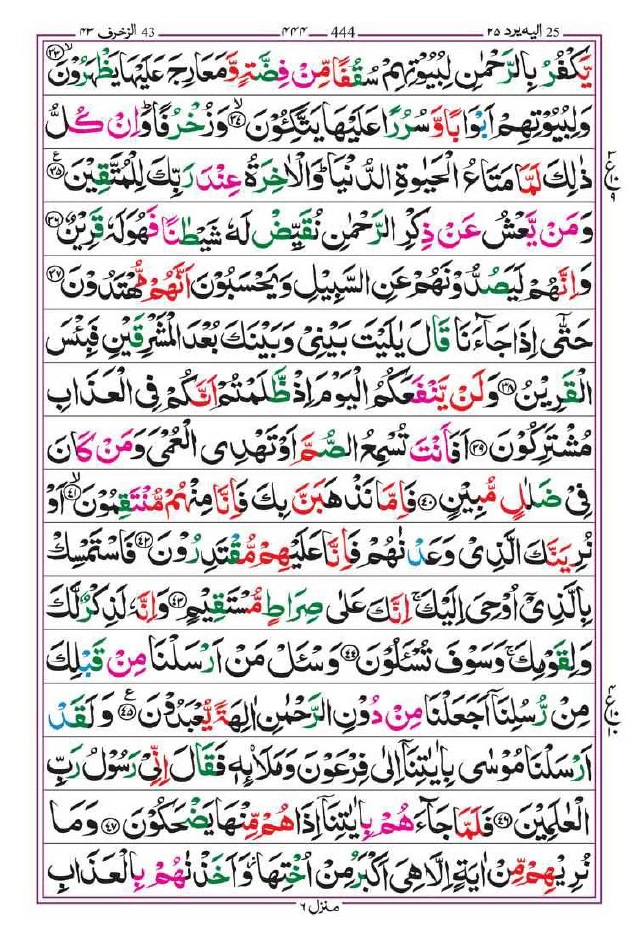 25 اليه يرد ٢٥ 444 ٤٤٤ 43 الزخرف ٤٣
يَّكْفُرُ بِالرَّحْمٰنِ لِبُيُوْتِهِمْ سُقُفًا مِّنْ فِضَّةٍ وَّمَعَارِجَ عَلَيْهَا يَظْهَرُوْنَ ۙ‏﴿۳۳﴾
وَلِبُيُوْتِهِمْ اَبْوَابًا وَّسُرُرًا عَلَيْهَا يَتَّكِـُٔوْنَ ۙ‏﴿۳۴﴾ وَزُخْرُفًا ؕ وَاِنْ كُلُّ
ذٰلِكَ لَمَّا مَتَاعُ الْحَيٰوةِ الدُّنْيَا ؕ وَالْاٰخِرَةُ عِنْدَ رَبِّكَ لِلْمُتَّقِيْنَ ﴿۳۵﴾ ع
٣ ع ١٠ ٩
وَمَنْ يَّعْشُ عَنْ ذِكْرِ الرَّحْمٰنِ نُقَيِّضْ لَهٗ شَيْطٰنًا فَهُوَ لَهٗ قَرِيْنٌ ﴿۳۶﴾
وَاِنَّهُمْ لَيَصُدُّوْنَهُمْ عَنِ السَّبِيْلِ وَيَحْسَبُوْنَ اَنَّهُمْ مُّهْتَدُوْنَ ﴿۳۷﴾
حَتّٰٓى اِذَا جَآءَنَا قَالَ يٰلَيْتَ بَيْنِيْ وَبَيْنَكَ بُعْدَ الْمَشْرِقَيْنِ فَبِئْسَ
الْقَرِيْنُ ﴿۳۸﴾ وَلَنْ يَّنْفَعَكُمُ الْيَوْمَ اِذْ ظَّلَمْتُمْ اَنَّكُمْ فِى الْعَذَابِ
مُشْتَرِكُوْنَ ﴿۳۹﴾ اَفَاَنْتَ تُسْمِعُ الصُّمَّ اَوْ تَهْدِى الْعُمْىَ وَمَنْ كَانَ
فِيْ ضَلٰلٍ مُّبِيْنٍ ﴿۴۰﴾ فَاِمَّا نَذْهَبَنَّ بِكَ فَاِنَّا مِنْهُمْ مُّنْتَقِمُوْنَ ۙ‏﴿۴۱﴾ اَوْ
نُرِيَنَّكَ الَّذِيْ وَعَدْنٰهُمْ فَاِنَّا عَلَيْهِمْ مُّقْتَدِرُوْنَ ﴿۴۲﴾ فَاسْتَمْسِكْ
بِالَّذِيْٓ اُوْحِيَ اِلَيْكَ ۚ اِنَّكَ عَلٰى صِرَاطٍ مُّسْتَقِيْمٍ ﴿۴۳﴾ وَاِنَّهٗ لَذِكْرٌ لَّكَ
وَلِقَوْمِكَ ۚ وَسَوْفَ تُسْـَٔلُوْنَ ﴿۴۴﴾ وَسْـَٔلْ مَنْ اَرْسَلْنَا مِنْ قَبْلِكَ
مِنْ رُّسُلِنَآ اَجَعَلْنَا مِنْ دُوْنِ الرَّحْمٰنِ اٰلِهَةً يُّعْبَدُوْنَ ﴿۴۵﴾ ع وَلَقَدْ
٤ ع ١٠ ١٠
اَرْسَلْنَا مُوْسٰى بِاٰيٰتِنَآ اِلٰى فِرْعَوْنَ وَمَلَا۟ئِهٖ فَقَالَ اِنِّيْ رَسُوْلُ رَبِّ
الْعٰلَمِيْنَ ﴿۴۶﴾ فَلَمَّا جَآءَهُمْ بِاٰيٰتِنَآ اِذَا هُمْ مِّنْهَا يَضْحَكُوْنَ ﴿۴۷﴾ وَمَا
نُرِيْهِمْ مِّنْ اٰيَةٍ اِلَّا هِيَ اَكْبَرُ مِنْ اُخْتِهَا ؗ وَاَخَذْنٰهُمْ بِالْعَذَابِ
منزل ٦